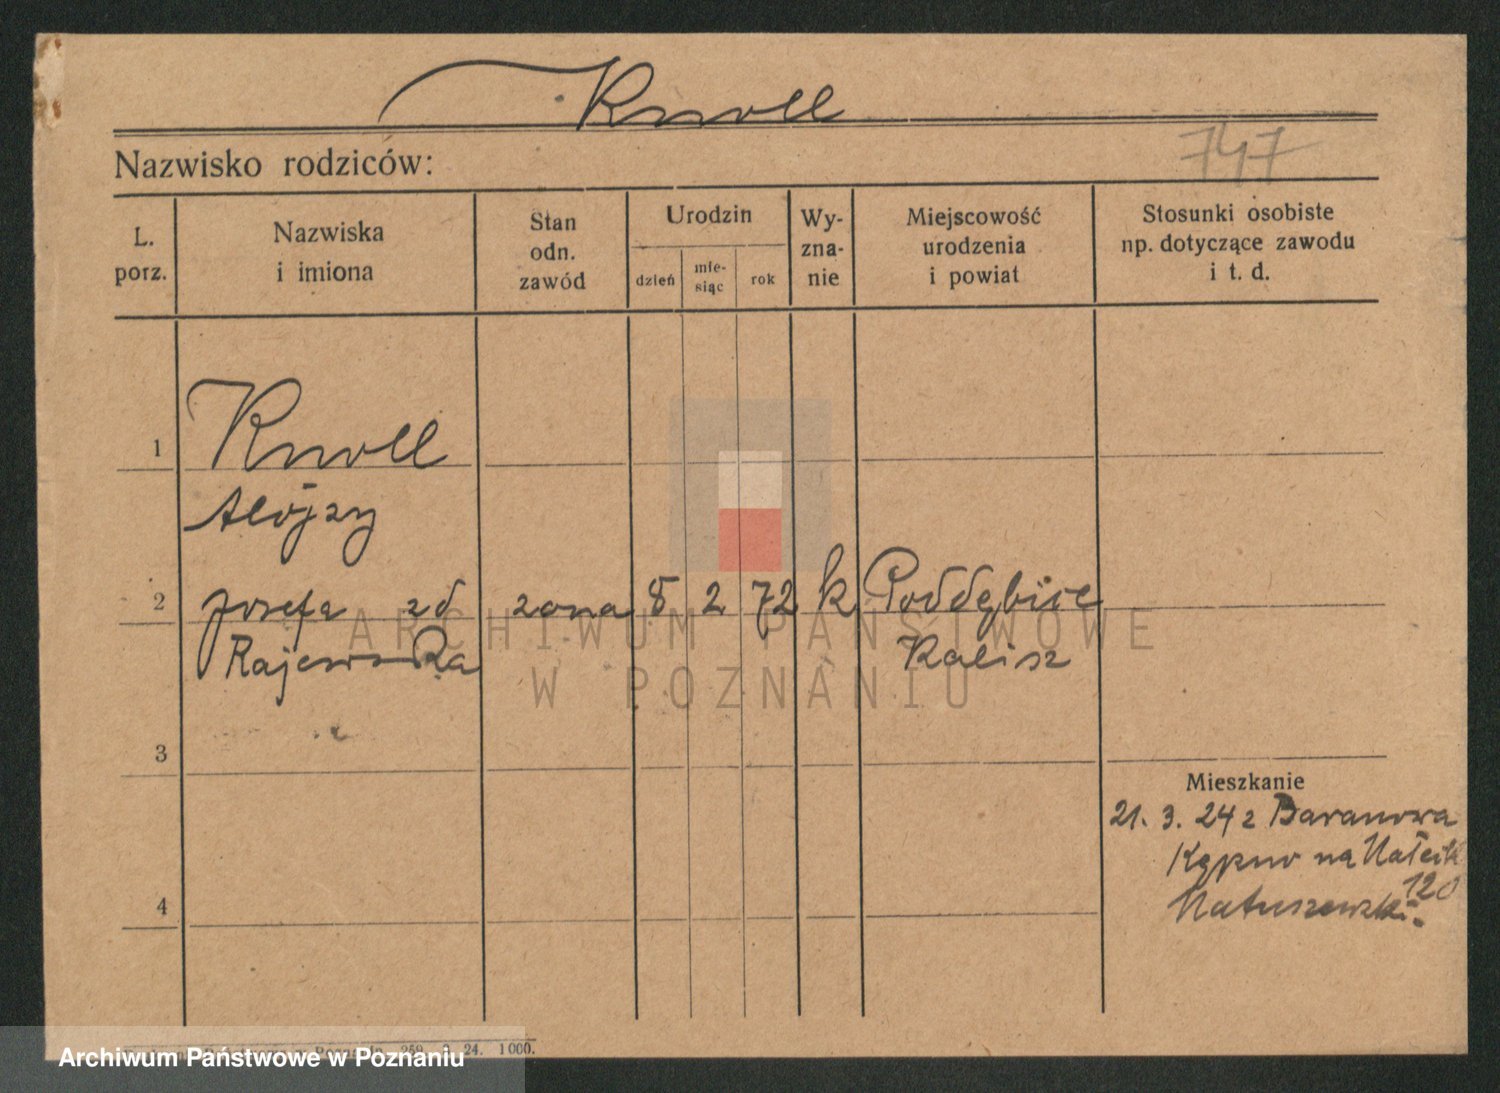 Knoll
Nazwisko rodziców:
747
L. porz.
Nazwiska i imiona
Stan odn. zawód
Urodzin
dzień
mie-siąc
rok
Wy-zna-nie
Miejscowość urodzenia i powiat
Stosunki osobiste np. dotyczące zawodu i t. d.
1 Knoll
Alojzy
2 Josefa zd zona 8 2 72 k Poddębice
Rajewska Kalisz
ARCHIWUM PAŃSTWOWE
W POZNANIU
3
Mieszkanie
21. 3. 24 z Baranowa
Kępno na
120
4 Matuszewski.
24. 1000.
Archiwum Państwowe w Poznaniu